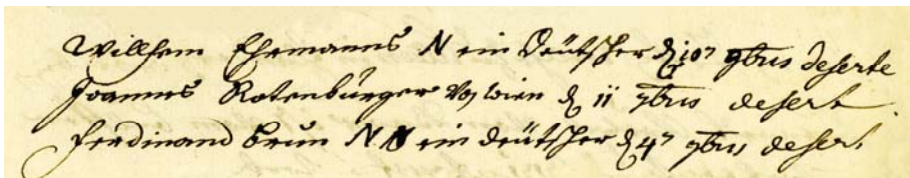 Willhem Ehrmanns N ein Deütscher d 10t 9bris deserte
Joannes Rotenbürger Von Wien d 11 9bris desert
Ferdinand Brun N N ein deütscher d 4t 9bris desert